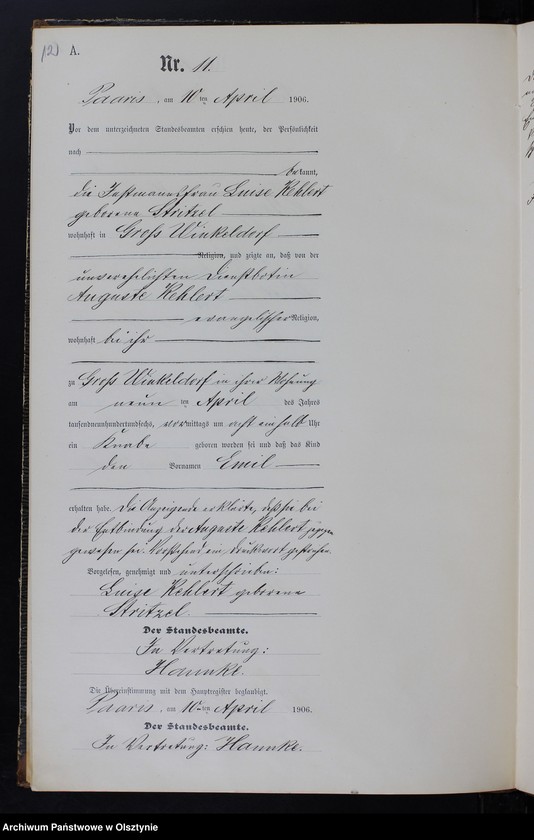 12
A.
Nr. 11.
Paaris, am 10ten April 1906.
Vor dem unterzeichneten Standesbeamten erschien heute, der Persönlichkeit
nach
bekannt,
die Instmannsfrau Luise Kehlert
geborene Stritzel
wohnhaft in Groß Winkeldorf
Religion, und zeigte an, daß von der
unverehelichten Dienstbotin
Auguste Kehlert
evangelischer Religion,
wohnhaft bei ihr
zu Groß Winkeldorf in ihrer Wohnung
am neun ten April des Jahres
tausendneunhundertundsechs, vormittags um acht einhalb Uhr
ein Knabe geboren worden sei und daß das Kind
den Vornamen Emil
erhalten habe. Die Anzeigende erklärte, daß sie bei
der Entbindung der Auguste Kehlert zugegen
gewesen sei. Vorstehend ein Druckwort gestrichen.
Vorgelesen, genehmigt und unterschrieben:
Luise Kehlert geborene
Stritzel.
Der Standesbeamte.
In Vertretung:
Hannke.
Die Übereinstimmung mit dem Hauptregister beglaubigt.
Paaris, am 10ten April 1906.
Der Standesbeamte.
In Vertretung: Hannke.
Archiwum Państwowe w Olsztynie